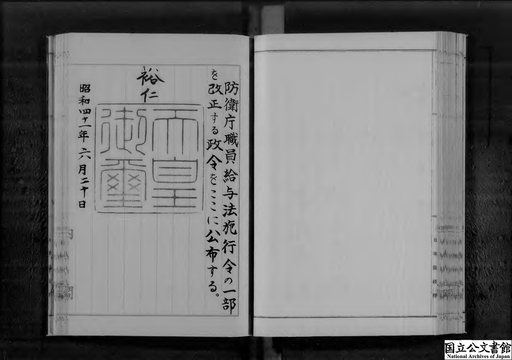 防衛庁職員給与法施行令の一部
を改正する政令をここに公布する。
裕仁
天皇
御璽
昭和四十一年六月二十日
国立公文書館
National Archives of Japan